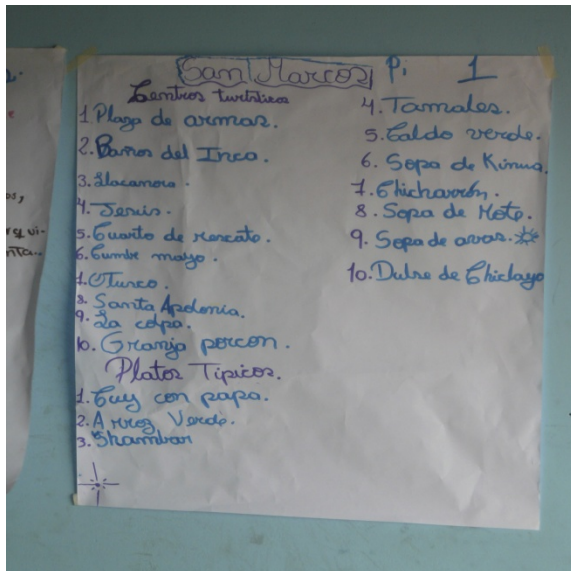 San Marcos P. 1
Centros turísticos
1. Plaza de armas.
2. Baños del Inca.
3. Llacanora.
4. Jesús.
5. Cuarto de rescate.
6. Cumbe mayo.
7. Otuzco.
8. Santa Apolonia.
9. La colpa.
10. Granja porcon.
Platos Típicos.
1. Cuy con papa.
2. Arroz Verde.
3. Shambar
4. Tamales.
5. Caldo verde.
6. Sopa de Kinua.
7. Chicharrón.
8. Sopa de Mote.
9. Sopa de avas.
10. Dulse de Chiclayo